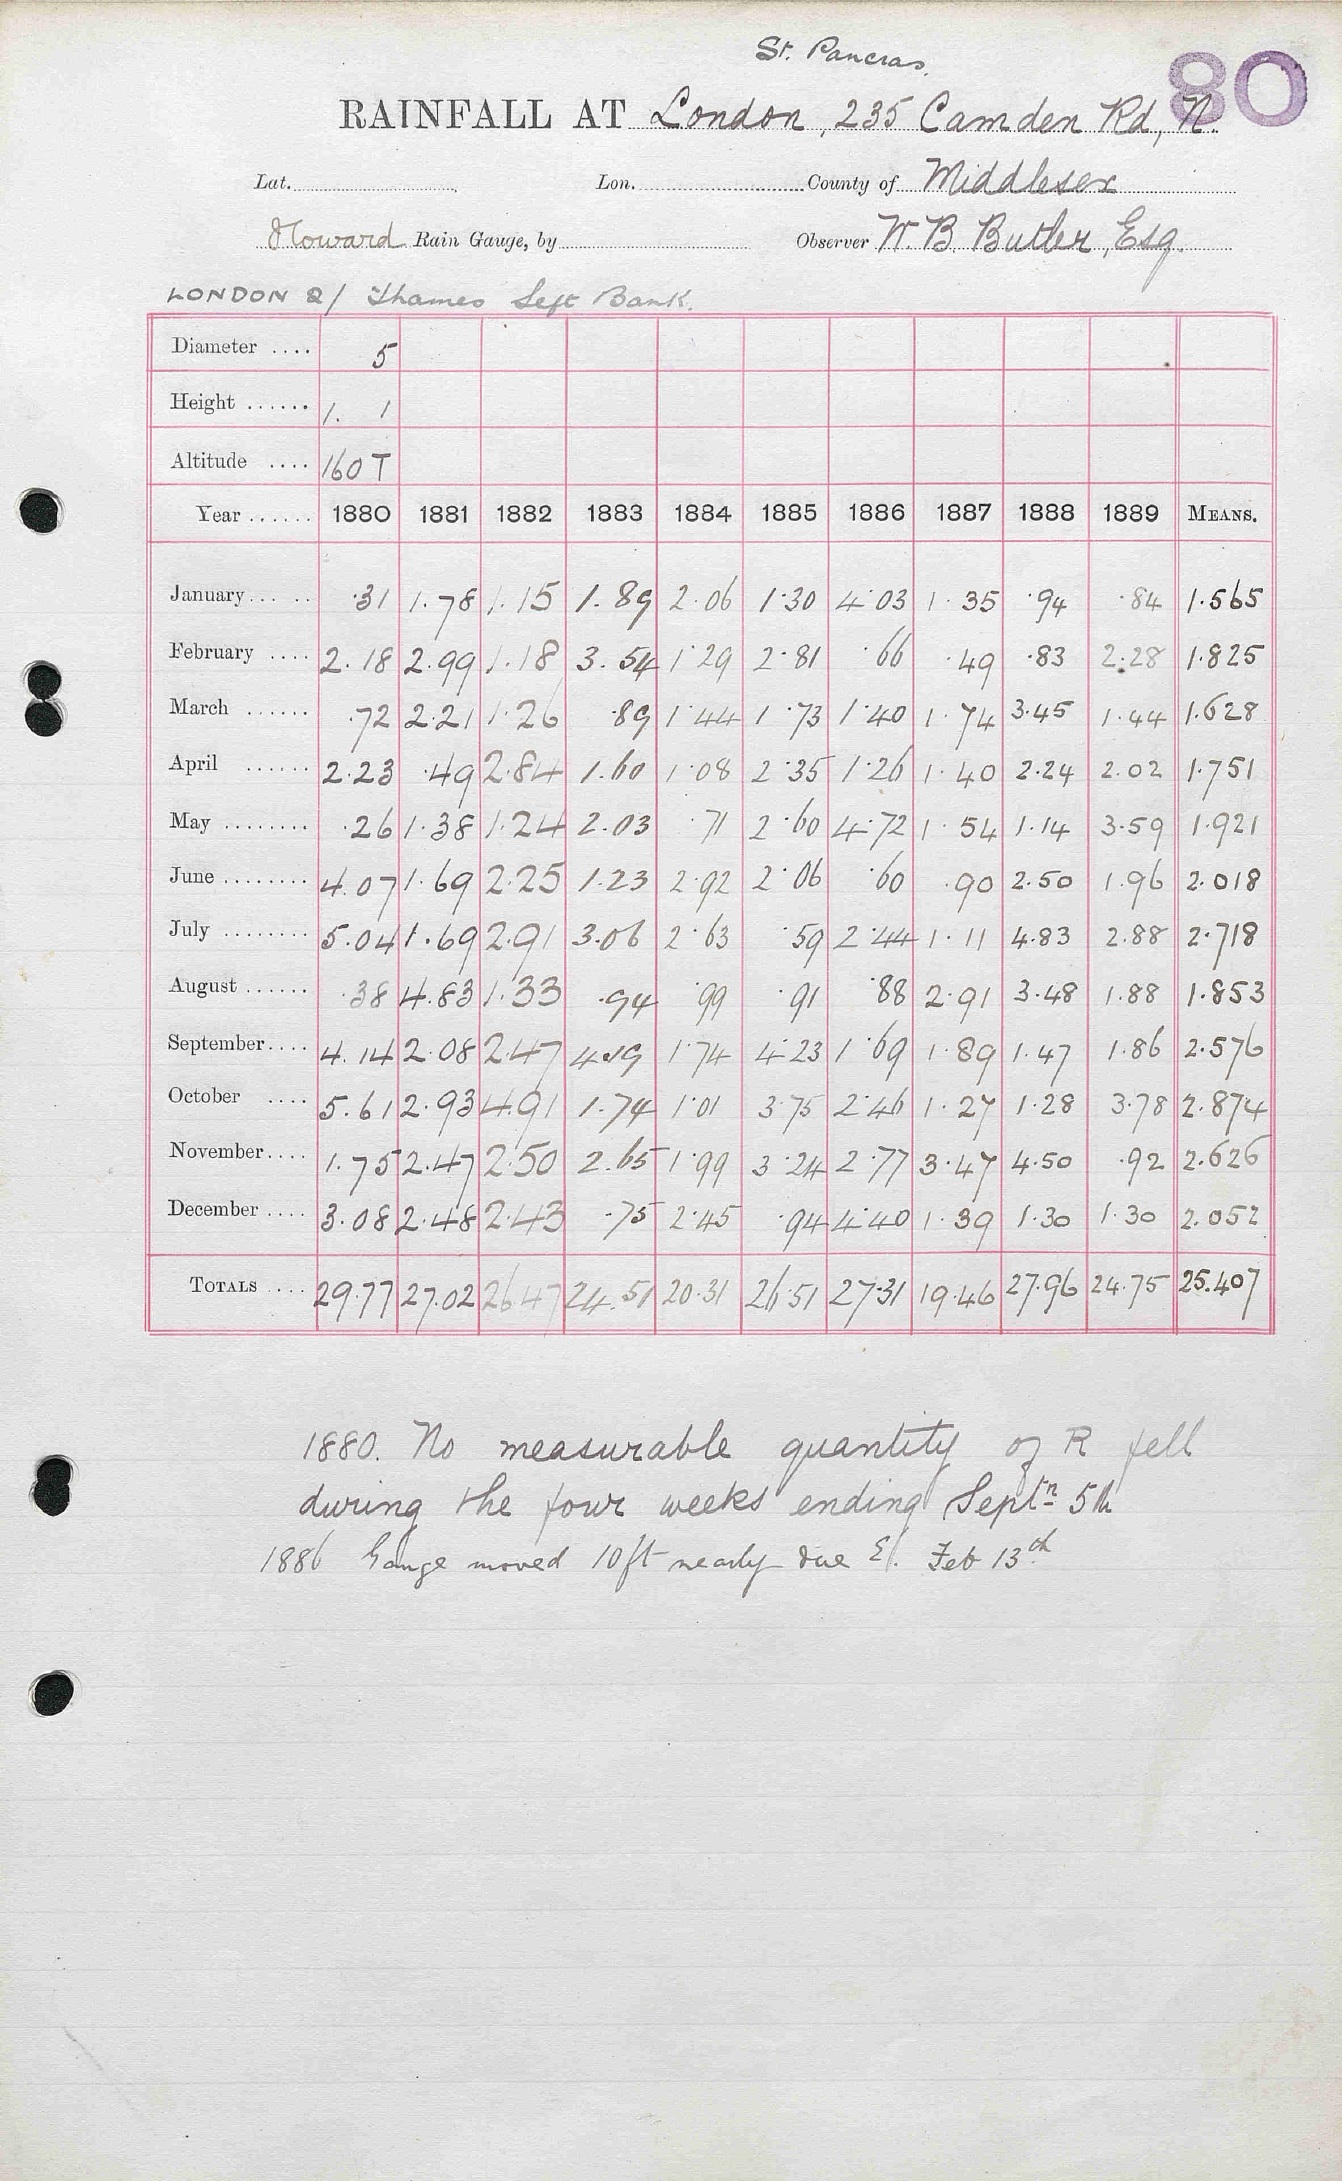 St. Pancras.
80
RAINFALL AT London, 235 Camden Rd, N.
Lat. Lon. County of Middlesex
Howard Rain Gauge, by Observer W. B. Butler, Esq.
LONDON 2/ Thames Left Bank.
Diameter .... 5
Height ...... 1. 1
Altitude .... 160 T
Year ...... 1880 1881 1882 1883 1884 1885 1886 1887 1888 1889 MEANS.
January ..... .31 1.78 1.15 1.89 2.06 1.30 4.03 1.35 .94 .84 1.565
February .... 2.18 2.99 1.18 3.54 1.29 2.81 .66 .49 .83 2.28 1.825
March ...... .72 2.21 1.26 .89 1.44 1.73 1.40 1.74 3.45 1.44 1.628
April ...... 2.23 .49 2.84 1.60 1.08 2.35 1.26 1.40 2.24 2.02 1.751
May ........ .26 1.38 1.24 2.03 .71 2.60 4.72 1.54 1.14 3.59 1.921
June ........ 4.07 1.69 2.25 1.23 2.92 2.06 .60 .90 2.50 1.96 2.018
July ........ 5.04 1.69 2.91 3.06 2.63 .59 2.44 1.11 4.83 2.88 2.718
August ...... .38 4.83 1.33 .94 .99 .91 .88 2.91 3.48 1.88 1.853
September .... 4.14 2.08 2.47 4.19 1.74 4.23 1.69 1.89 1.47 1.86 2.576
October .... 5.61 2.93 4.91 1.74 1.01 3.75 2.46 1.27 1.28 3.78 2.874
November .... 1.75 2.47 2.50 2.65 1.99 3.24 2.77 3.47 4.50 .92 2.626
December .... 3.08 2.48 2.43 .75 2.45 .94 4.40 1.39 1.30 1.30 2.052
TOTALS .... 29.77 27.02 26.47 24.51 20.31 26.51 27.31 19.46 27.96 24.75 25.407
1880. No measurable quantity of R fell
during the four weeks ending Septr 5th
1886 Gauge moved 10ft nearly due E. Feb 13th